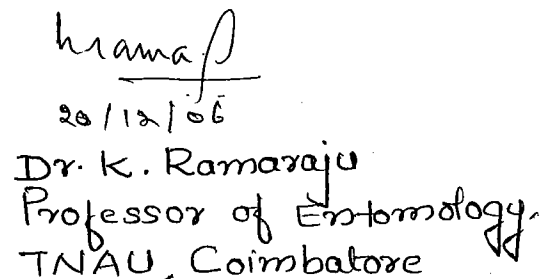 20/12/06
Dr. K. Ramaraju
Professor of Entomology,
TNAU, Coimbatore